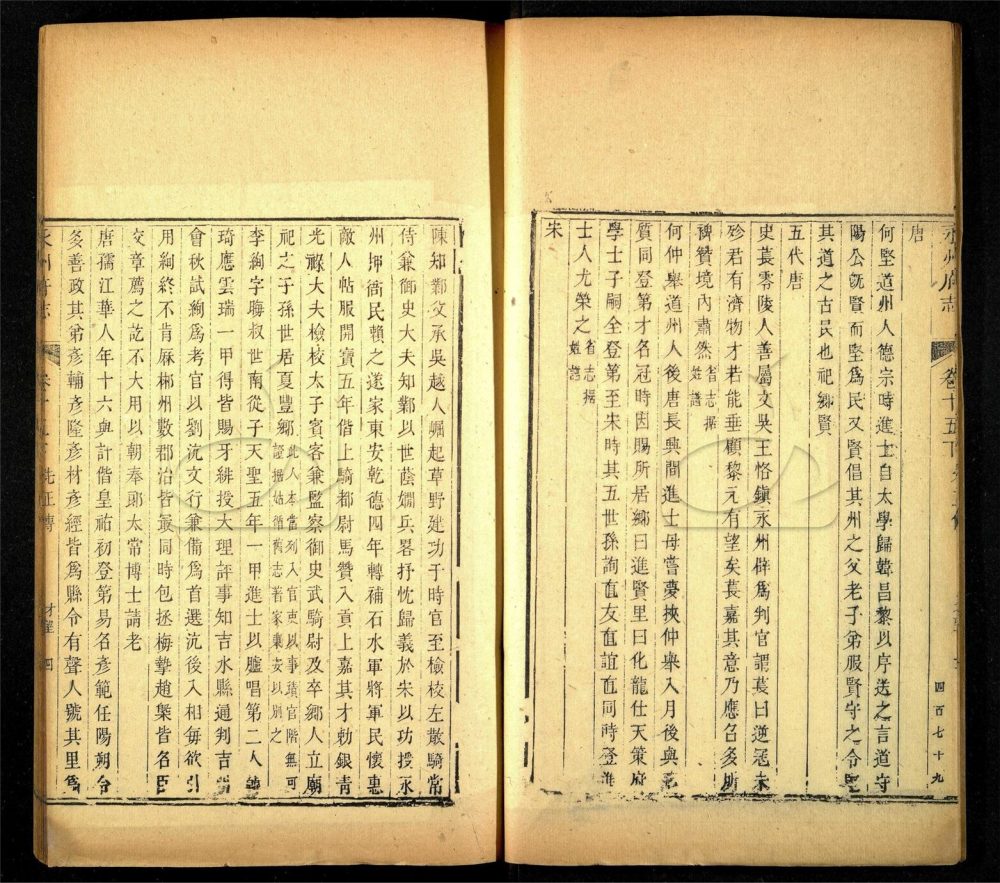 永州府志
卷十五下
四百七十九
唐
何堅道州人德宗時進士自太學歸韓昌黎以序送之言道守
陽公旣賢而堅爲民又賢倡其州之父老子弟服賢守之令堅
其道之古民也祀鄉賢
五代唐
史萇零陵人善屬文吳王恪鎮永州辟爲判官謂萇曰逆寇未
殄君有濟物才若能垂顧黎元有望矣萇嘉其意乃應召多所
裨贊境內肅然省志据姓譜
何仲舉道州人後唐長興間進士母嘗夢挾仲舉入月後與
質同登第才名冠時因賜所居鄉曰進賢里曰化龍仕天策府
學士子嗣全登第至宋時其五世孫詢直友直誼直同時登進
士人尤榮之省志据姓譜
宋
陳知鄴父承吳越人崛起草野建功于時官至檢校左散騎常
侍兼御史大夫知鄴以世蔭嫺兵畧抒忱歸義於宋以功授永
州押衙民賴之遂家東安乾德四年轉補石水軍將軍民懷惠
敵人帖服開寶五年偕上騎都尉馬贊入貢上嘉其才勅銀青
光祿大夫檢校太子賓客兼監察御史武騎尉及卒鄉人立廟
祀之子孫世居夏豐鄉此人本當列入官吏以事蹟官階無可證据姑循舊志著家東安以別之
李絢字晦叔世南從子天聖五年一甲進士以臚唱第二人
琦應雲瑞一甲得皆賜牙緋授大理評事知吉水縣通判吉
會秋試絢爲考官以劉沆文行兼備爲首選沆後入相每欲引
用絢終不肯庥郴州數郡治皆最同時包拯梅摯趙槩皆名臣
交章薦之訖不大用以朝奉郎太常博士請老
唐孺江華人年十六與計偕皇祐初登第易名彥範任陽朔令
多善政其弟彥輔彥隆彥材彥經皆爲縣令有聲人號其里爲
永州府志
卷十五下
先正傳
四